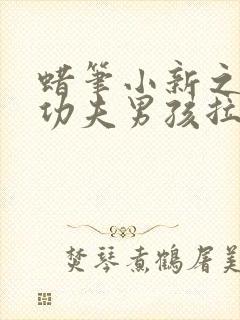 蜡笔小新之
功夫男孩拉
焚琴煮鹤屠美